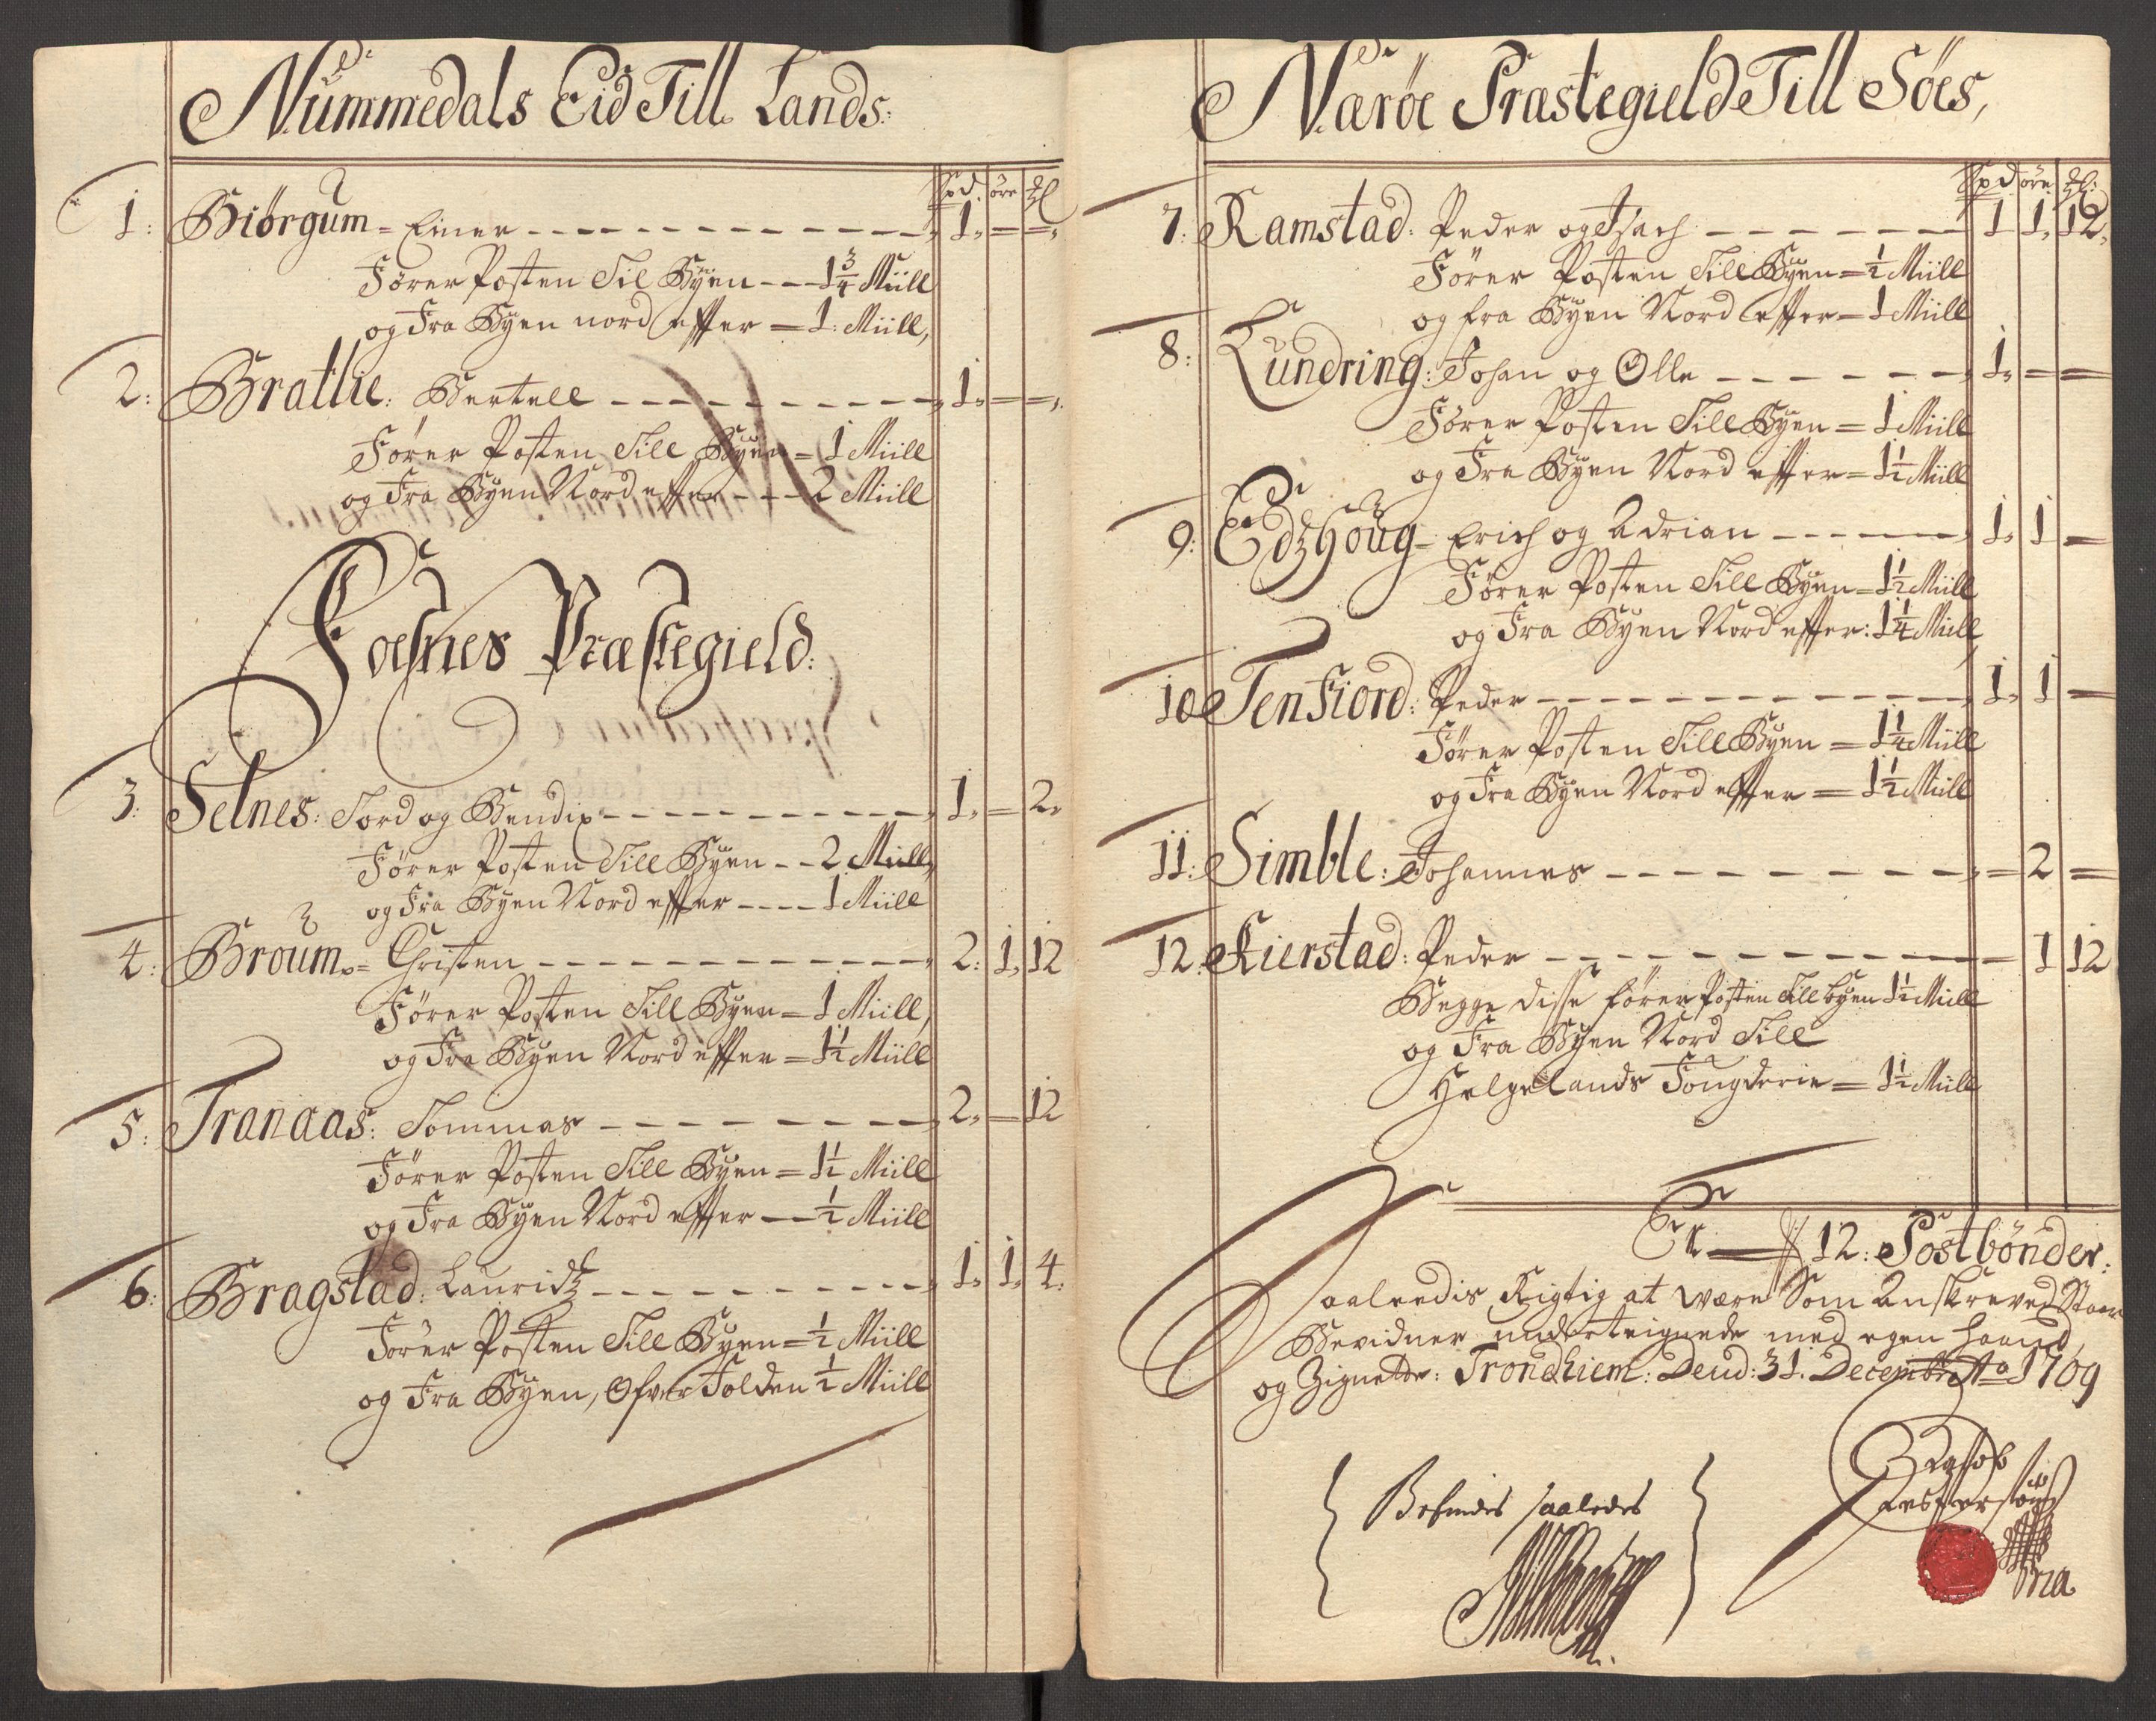 Nummedals Eid Till Lands:
Spd. öre
1: Biörgum = Einer 1 = =
Förer Posten Til Byen 1 3/4 Miill
og Fra Byen nord effter = 1: Miill,
2: Brattlie: Bertell 1 = =
Förer Posten Till Byen = 1 Miill
og Fra Byen Nord effter 2 Miill
Foesnes Præstegield:
3: Selnes: Tord og Bendix 1 = 2
Förer Posten Till Byen 2 Miill,
og Fra Byen Nord effter 1 Miill
4: Broum = Christen 2: 1 12
Förer Posten Till Byen = 1 Miill,
og Fra Byen Nord effter = 1 1/2 Miill
5: Tranaas: Tommas 2 = 12
Förer Posten Till Byen = 1 1/2 Miill
og Fra Byen Nord effter 1/2 Miill
6: Bragstad: Lauridtz 1 1 4
Förer Posten Till Byen = 1/2 Miill
og Fra Byen, Ofver Folden 1/2 Miill
Næröe Præstegield Till Söes,
Spd öre
7: Ramstad: Peder og Isach 1 1 12
Förer Posten Till Byen = 1/2 Miill
og fra Byen Nord effter = 1 Miill
8: Lundring: Johan og Olle 1 = =
Förer Posten Till Byen = 1 Miill
og Fra Byen Nord effter = 1 1/2 Miill
9: Edtzhöug = Erich og Adrian 1 1 =
Förer Posten Till Byen = 1 1/2 Miill
og Fra Byen Nord effter: 1 1/4 Miill
10 Tenfiord: Peder 1 1 =
Förer Posten Till Byen = 1 1/4 Miill
og Fra Byen Nord effter = 1 1/2 Miill
11: Simble: Johannes = 2 =
12: Kierstad: Peder 1 12
Begge disse förer Posten Till byen 1 1/2 Miill
og Fra Byen Nord Till
Helgelands Fougderie = 1 1/2 Miill
Er 12: Postbönder:
Saaleedis Rigtig at være Som Anskreved Staar
Bevidner underteignede med egen Haand
og Zignette: Trondhiem: Dend: 31. Decembr: Ao 1709
Befindes saaledes